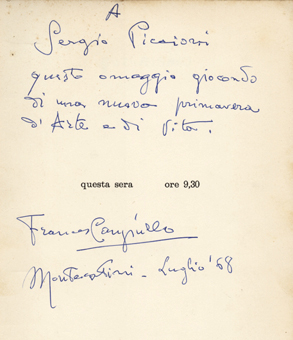 A
Sergio
questo omaggio giocondo
di una nuova primavera
d'Arte e di Vita.
questa sera ore 9,30
Montecatini - Luglio '68